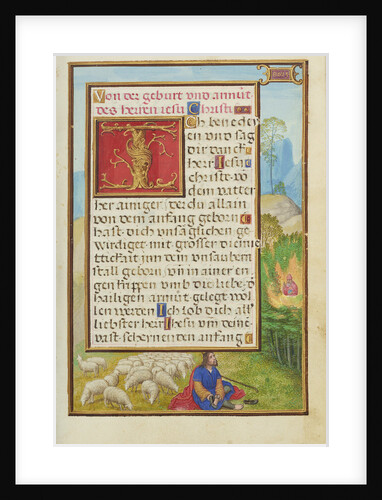 Von der geburt vnd armůt
des herren iesu Christi
Ch benedey
en vnd sag
dir danck
herr Jesu
christe · vō
dem vatter
her ainiger · der du allain
von dem anfang geborn
hast dich vnsaglichen ge
wirdiget · mit grosser diemie
ttickait jnn dem vnsaubern
stall geborn · vn̄ in ainer en
gen krippen vm̄ die liebe · d
hailigen armůt gelegt wöl
len werden Ich lob dich all
liebster herr Jhesu vm̄ deine
vast scheynenden anfang